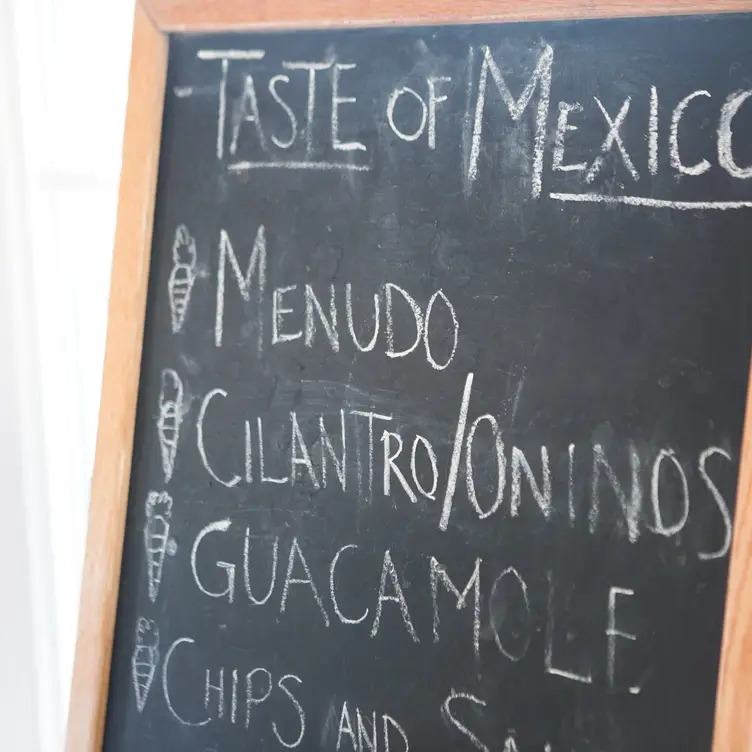 TASTE OF MEXICO
MENUDO
CILANTRO/ONINOS
GUACAMOLE
CHIPS AND